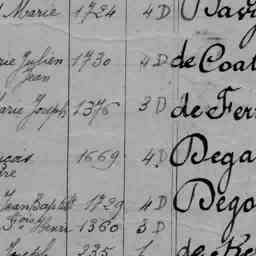 Marie 1724 4 D
Julien 1730 4 D de Coat
Jean
Marie Joseph 1376 3 D de Fer
1669 4. D Dega
Jean Baptist 1729 4 D Dego
Henri 1360 3 D
Joseph 235 1 de Ke